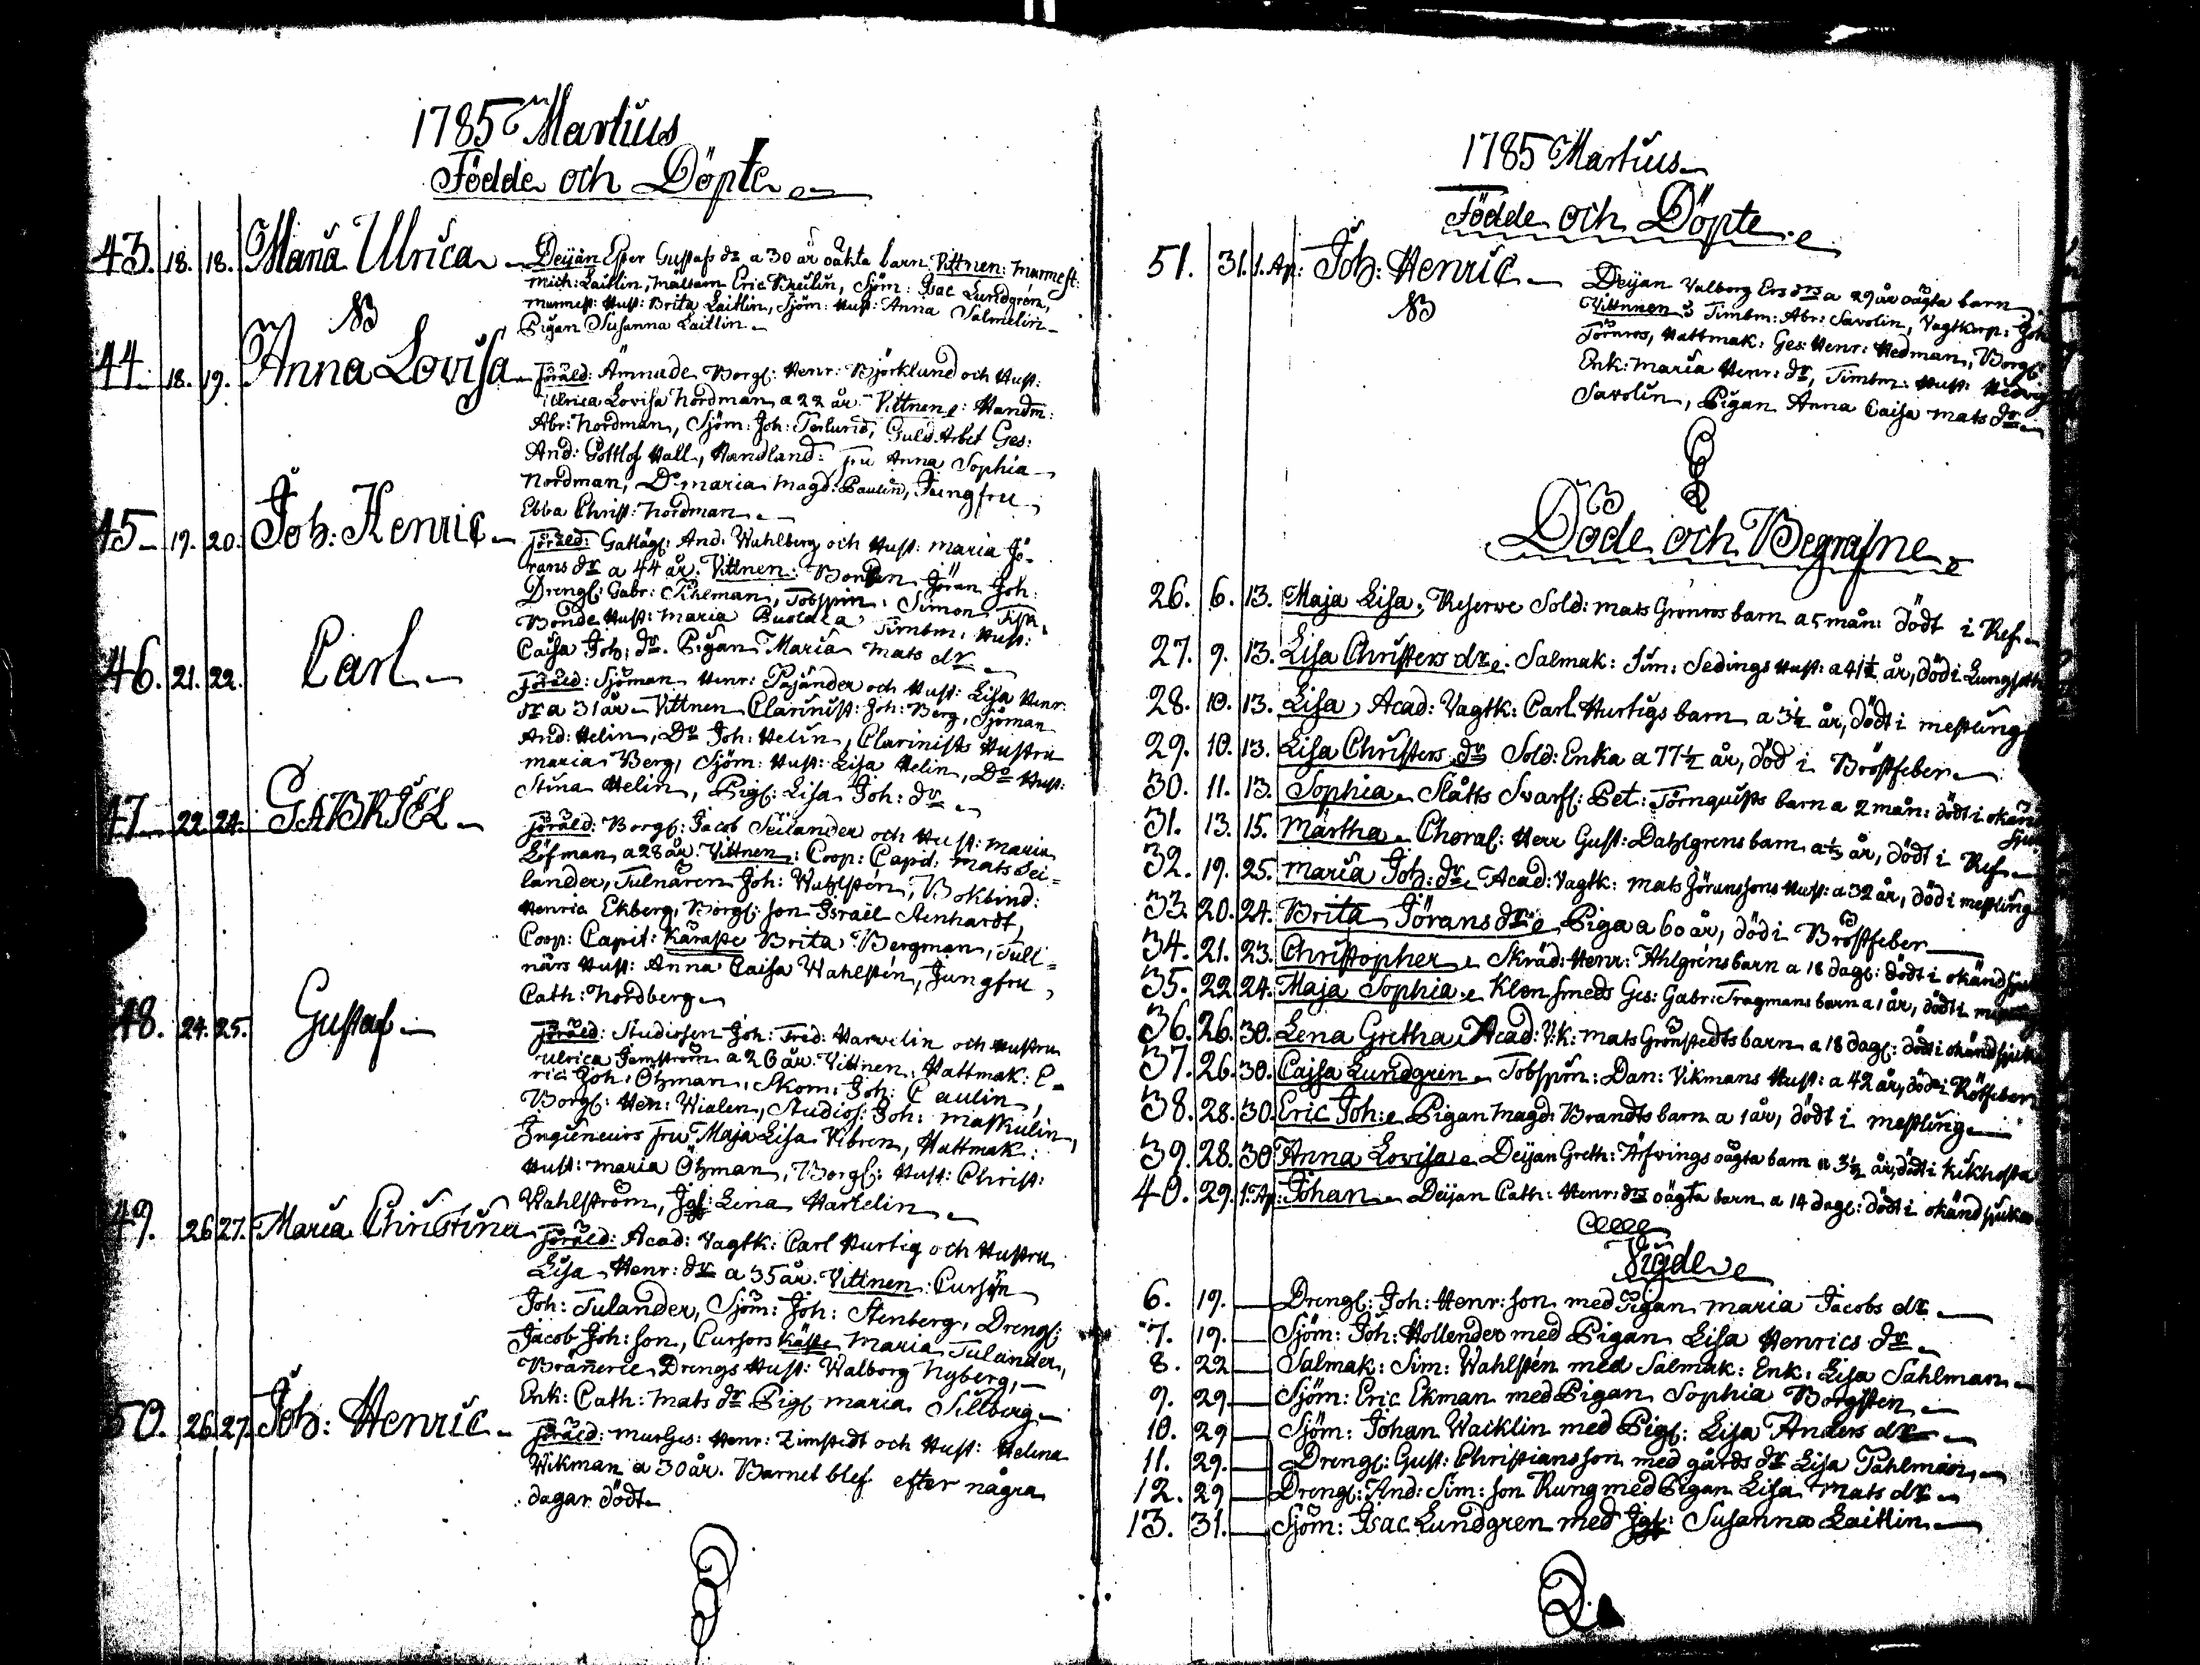 1785 Martius
Födde och Döpte
43. 18. 18. Maria Ulrica Deijan Ester Gustafs dr a 30 år oäkta barn Vittnen: murmest:
mich: Laitlin, mältarn Eric Vikulin, Sjöm: Isac Lundgrén,
NB murmest: Hust: Brita Laitlin, Sjöm: Hust: Anna Salmelin
Pigan Susanna Laitlin
44. 18. 19. Anna Lovisa Föräld: Ämnade Borgl: Henr: Björklund och Hust:
Ulrica Lovisa Nordman a 22 år Vittnen: Handm:
Abr: Nordman, Sjöm: Joh: Guld Arbet Ges:
And: Gottlof Hall, Handland: fru Anna Sophia
Nordman, Do maria magd: Paulin, Jungfru
Ebba Christ: Nordman
45 19. 20. Joh: Henric Föräld: And: Wahlberg och Hust: maria Jö-
rans dr a 44 år. Vittnen: Bonden Jöran Joh:
Drengl: Gabr: Tihlman, Tobspin: Simon
Bonde Hust: maria Timbm: Hust:
Caisa Joh: dr. Pigan Maria Mats dr
46. 21. 22. Carl Föräld: Sjöman Henr: Pajander och Hust: Lisa Henr:
dr a 31 år Vittnen Clarinist: Joh: Berg, Sjöman
And: Helin, Do Joh: Helin, Clarinists Hustru
maria Berg, Sjöm: Hust: Lisa Helin, Do Hust:
Stina Helin, Pigl: Lisa Joh: dr
47 22 24. GABRIEL Föräld: Borgl: Jacob Seilander och Hust: maria
Löfman a 28 år. Vittnen: Coop: Capit: Mats Sei=
lander, Tulnären Joh: Wahlstén, Bokbind:
Henric Ekberg, Borgl: son Israel Stenhardt,
Coop: Capit: Käraste Brita Bergman, Tull=
närs Hust: Anna Caisa Wahlstén, Jungfru
Cath: Nordberg
48. 24. 25. Gustaf Föräld: Studiosen Joh: Fred: Harvelin och Hustru
Ulrica Jernström a 26 år. Vittnen: Hattmak: E=
ric Joh: Öhman, Skom: Joh: Paulin,
Borgl: Hen: Wialen, Studios: Joh: Maskulin,
Ingieneurs fru Maja Lisa Vibren, Hattmak:
Hust: Maria Öhman, Borgl: Hust: Christ:
Wahlström, Jgf: Lina Hartelin
49. 26 27. Maria Christina Föräld: Acad: Vagtk: Carl Hurtig och Hustru
Lisa Henr: dr a 35 år. Vittnen: Cursorn
Joh: Tulander, Sjöm: Joh: Stenberg, Drengl:
Jacob Joh: son, Cursors Käste Maria Tulander,
Bränerie Drengs Hust: Walborg Nyberg,
Enk: Cath: Mats dr Pigl maria Sillberg
50. 26 27. Joh: Henric Föräld: MurGes: Henr: Zimstedt och Hust: Helena
Wikman a 30 år. Barnet blef efter några
dagar dödt
1785 Martius
Födde och Döpte
51. 31. 1. Ap: Joh: Henric Deijan Valborg Ers drs a 29 år oägta barn
NB Vittnnen: Timbm: Abr: Savolin, Vagtkorp: Joh
Törnros, Hattmak: Ges: Henr: Hedman, Borgl:
Enk: maria Henr: dr, Timbm: Hust: Hedvig
Savolin, Pigan Anna Caisa mats dr
Döde och Begrafne
26. 6. 13. Maja Lisa, Reserve Sold: mats Grönros barn a 5 mån: dödt i Ref
27. 9. 13. Lisa Christers dr Salmak: Sim: Sedings Hust: a 41½ år, död i
28. 10. 13. Lisa, Acad: Vagtk: Carl Hurtigs barn a 3½ år, dödt i meßling
29. 10. 13. Lisa Christers dr Sold: Enka a 77½ år, död i Bröstfeber
30. 11. 13. Sophia Slåtts Svarfl: Pet: Törnquists barn a 2 mån: dödt i okänd
31. 13. 15. Martha Choral: Herr Gust: Dahlgrens barn a ½ år, dödt i Ref
32. 19. 25. maria Joh: dr Acad: Vagtk: mats Jöranssons Hust: a 32 år, död i meßling
33. 20. 24. Brita Jörans dr Piga a 60 år, död i Bröstfeber
34. 21. 23. Christopher Skräd: Henr: Ahlgréns barn a 18 dagl: dödt i okänd sjuk
35. 22 24. Maja Sophia Klensmeds Ges: Gabr: Tragmans barn a 1 år, dödt i
36. 26. 30. Lena Gretha Acad: V:k: mats Grönstedts barn a 18 dagl: dödt i okänd sjuk
37. 26. 30. Cajsa Lundgrin Tobspin: Dan: Vikmans Hust: a 42 år, död i Rötfeber
38. 28. 30 Eric Joh: Pigan Magd: Brandts barn a 1 år, dödt i meßling
39. 28. 30 Anna Lovisa Deijan Greth: Arfvings oägta barn a 3½ år, dödt i kikhosta
40. 29. 1. Ap: Johan Deijan Cath: Henr: drs oägta barn a 14 dagl: dödt i okänd sjuk
Vigde
6. 19. Drengl: Joh: Henr: son med Pigan maria Jacobs dr
7. 19. Sjöm: Joh: Hollender med Pigan Lisa Henrics dr
8. 22 Salmak: Sim: Wahlstén med Salmak: Enk: Lisa Sahlman
9. 29 Sjöm: Eric Ekman med Pigan Sophia Borgsten
10. 29 Sjöm: Johan Waiklin med Pigl: Lisa Anders dr
11. 29. Drengl: Gust: Christiansson med gårds dr Lisa Tahlman
12. 29 Drengl: And: Sim: son Rung med Pigan Lisa Mats dr
13. 31. Sjöm: Isac Lundgren med Jgf: Susanna Laitlin